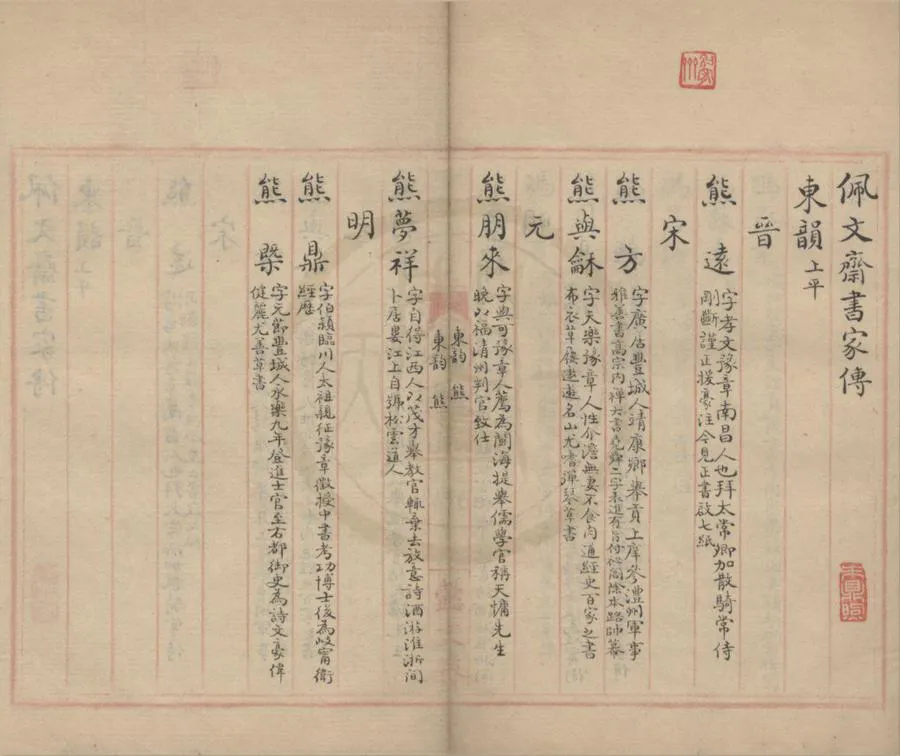 佩文齋書家傳
東韻上平
晉
熊遠
字孝文豫章南昌人也拜太常卿加散騎常侍
剛斷謹正援豪注今見正書啟七紙
宋
熊方
字廣居豐城人靖康鄉舉貢上庠參澧州軍事
雅善書高宗內禪大書堯舜二字表進有旨付秘閣除本路帥幕
熊與龢
字天樂豫章人性介澹無妻不食肉通經史百家之書
布衣草屨遨遊名山尤嗜彈琴草書
元
熊朋來
字與可豫章人薦為閩海提舉儒學官稱天慵先生
晚以福清州判官致仕
東韵 熊
東韵 熊
熊夢祥
字自得江西人以茂才舉教官輒棄去放意詩酒游淮浙間
卜居婁江上自號松雲道人
明
熊鼎
字伯穎臨川人太祖親征豫章徵授中書考功博士後為岐甯衛
經歷
熊槩
字元節豐城人永樂九年登進士官至右都御史為詩文豪偉
健麗尤善草書